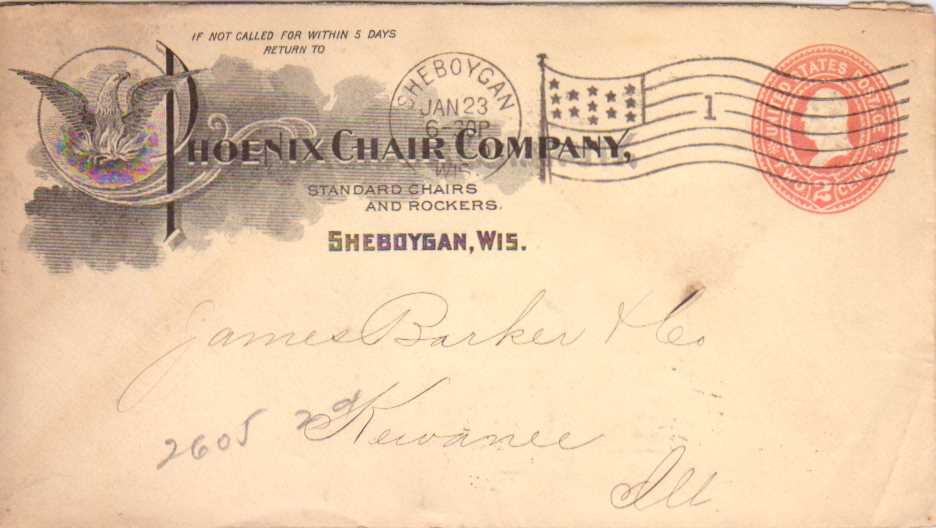 IF NOT CALLED FOR WITHIN 5 DAYS
RETURN TO
PHOENIX CHAIR COMPANY,
STANDARD CHAIRS
AND ROCKERS.
SHEBOYGAN, WIS.
SHEBOYGAN
JAN 23
WIS.
1
UNITED STATES POSTAGE
TWO 2 CENTS
James Barker & Co
2605
Kewanee
Ill